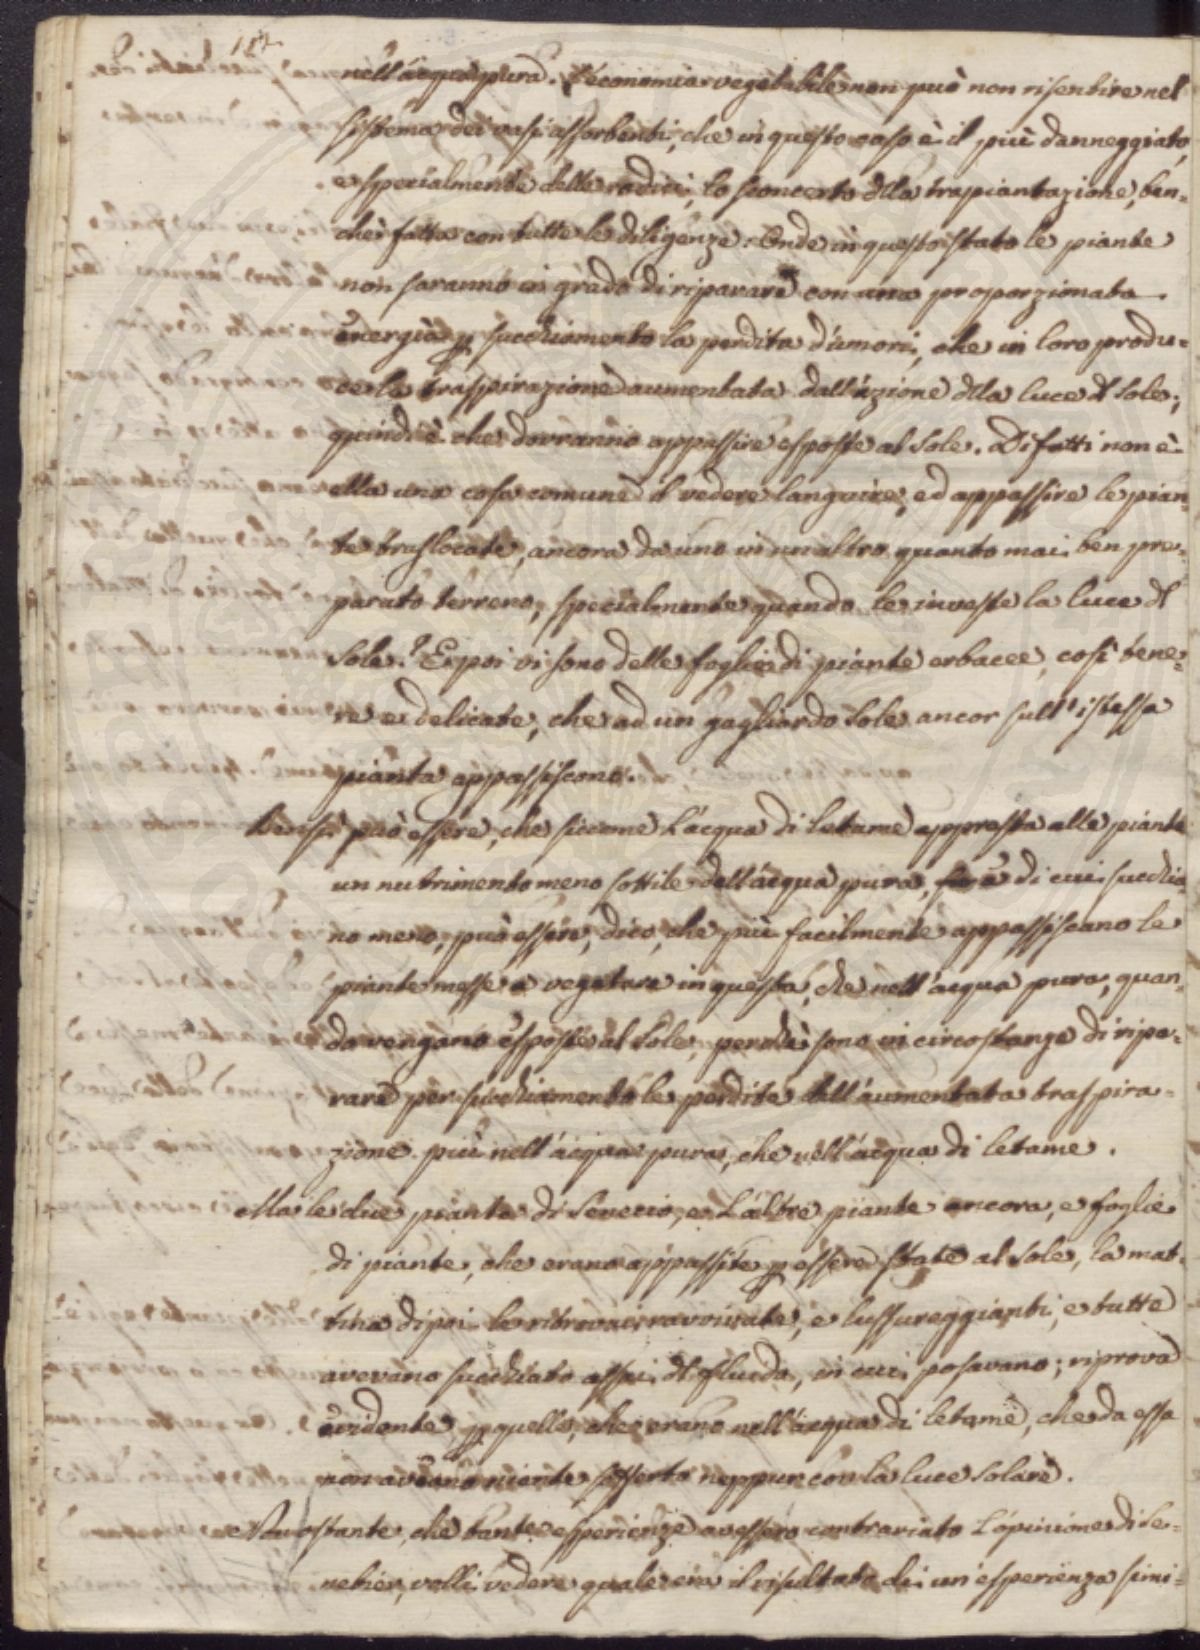 nell'acqua pura. L'economia vegetabile non può non risentire nel
sistema dei vasi assorbenti, che in questo caso è il più danneggiato,
e specialmente delle radici, lo sconcerto dlla trapiantazione, ben=
chè fatta con tutte le diligenze. Onde in questo stato le piante
non saranno in grado di riparare con una proporzionata
energia p succhiamento la perdita d'umori, che in loro produ=
ce la traspirazione aumentata dall'azione dlla luce dl Sole;
quindi è che dovranno appassire esposte al Sole. Difatti non è
ella una cosa comune il vedere languire, ed appassire le pian
te traslocate, ancora da uno in un altro quanto mai ben pre=
parato terreno, specialmente quando le investe la luce dl
Sole? E poi vi sono delle foglie di piante erbacee, così tene=
re e delicate, che ad un gagliardo Sole ancor sull'istessa
pianta appassiscono.
Bensì può essere, che siccome l'acqua di letame appresta alle piante
un nutrimento meno sottile dell'acqua pura, di cui succhia
no meno, può essere, dico, che più facilmente appassiscano le
piante messe a vegetare in questa, che nell'acqua pura, quan=
do vengano esposte al Sole, perchè sono in circostanze di ripa=
rare per succhiamento le perdite dell'aumentata traspira=
zione più nell'acqua pura, che nell'acqua di letame.
Ma le due piante di Senecio, e l'altre piante ancora, e foglie
di piante, che erano appassite p essere state al Sole, la mat=
tina dipoi le ritrovai ravvivate, e lussureggianti, e tutte
avevano succhiato assai dl fluido, in cui posavano; riprova
evidente p quelle, che erano nell'acqua di letame, che da essa
non aveano niente sofferto neppur con la luce solare.
Nonostante, che tante esperienze avessero contrariato l'opinione di Se=
nebier, volli vedere quale era il risultato di un'esperienza simi=